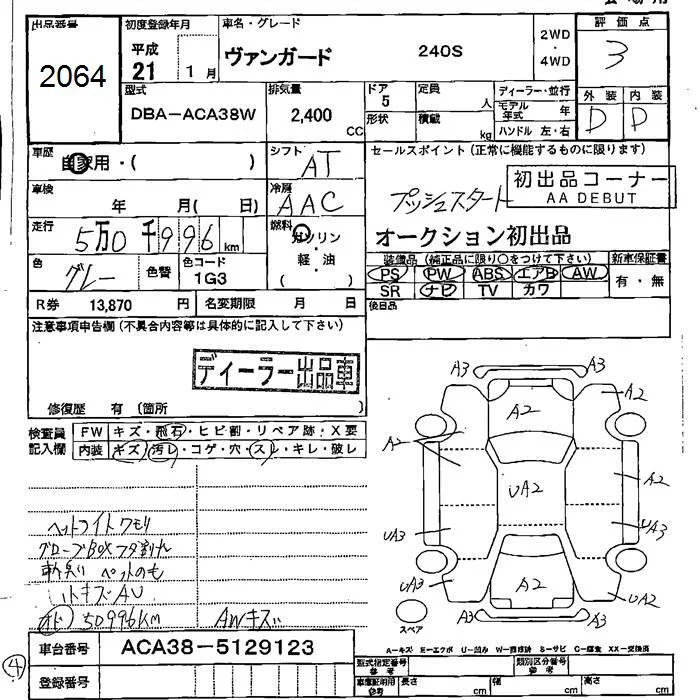 出品番号
2064
初度登録年月
平成
21 1月
車名・グレード
ヴァンガード 240S
2WD
・
4WD
評価点
3
型式
DBA-ACA38W
排気量
2,400
CC
ドア
5
形状
定員
人
積載
kg
ディーラー・並行
モデル年式 年
ハンドル 左・右
外装 内装
D D
車歴
自家用・( )
シフト
AT
セールスポイント(正常に機能するものに限ります)
プッシュスタート
初出品コーナー
AA DEBUT
オークション初出品
車検
年 月( 日)
冷房
AAC
走行
5万0千996 km
燃料
ガソリン
軽・油
( )
色
グレー
色替
色コード
1G3
装備品(純正品に限り○をつけて下さい)
PS PW ABS エアB AW
SR ナビ TV カワ
新車保証書
有・無
R券 13,870 円
名変期限 月 日
後日品
注意事項申告欄(不具合内容等は具体的に記入して下さい)
ディーラー出品車
修復歴 有(箇所 )
検査員
記入欄
FW キズ・飛石・ヒビ割・リペア跡・X要
内装 キズ・汚レ・コゲ・穴・スレ・キレ・破レ
ヘッドライトクモリ
グローブBOXフタ割れ
ペットのも
キズAU
オド 50996KM AWキズ
A3 A3
A2
A2
A2
A2
UA2
UA3
UA3
UA3
A2
UA2
A3
A3
スペア
A-キズ E-エクボ U-凹み W-補修跡 S-サビ C-腐食 XX-交換済
④
車台番号 ACA38-5129123
登録番号
型式指定番号
参考
類別区分番号
参考
車庫証明用
参考
長さ cm
幅 cm
高さ cm